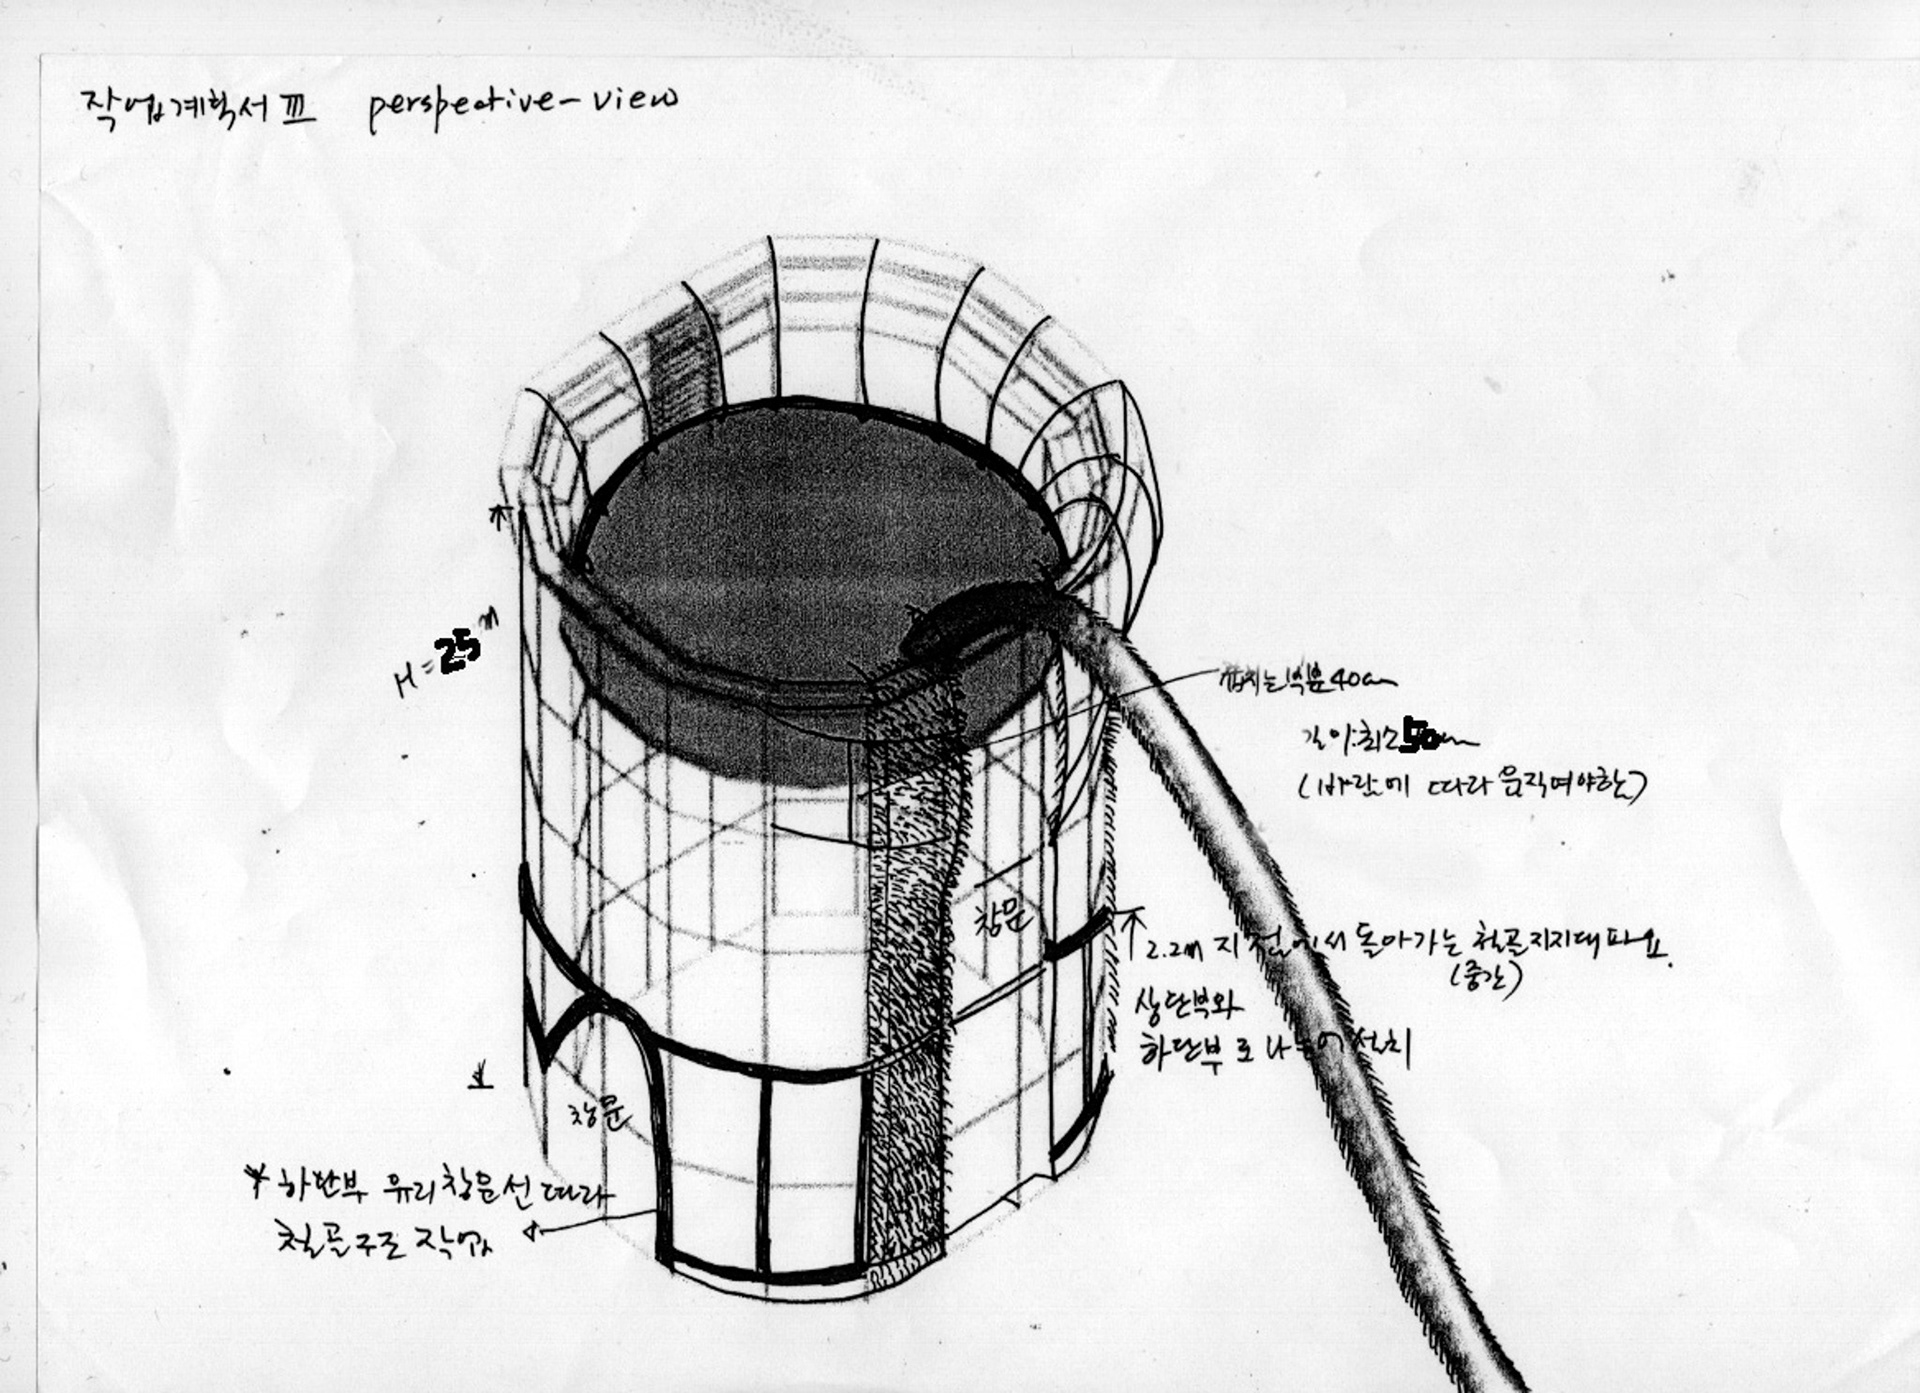 작업계획서 Ⅲ perspective-view
H = 25m
겹치는 부분 40cm
길이:최소50cm
(바람에 따라 움직여야함)
창문
2.2m 지점에서 돌아가는 철골지지대 파요.
(중간)
상단부와
하단부로 나눠어 설치
창문
* 하단부 유리창문선 따라
철골구조 작업